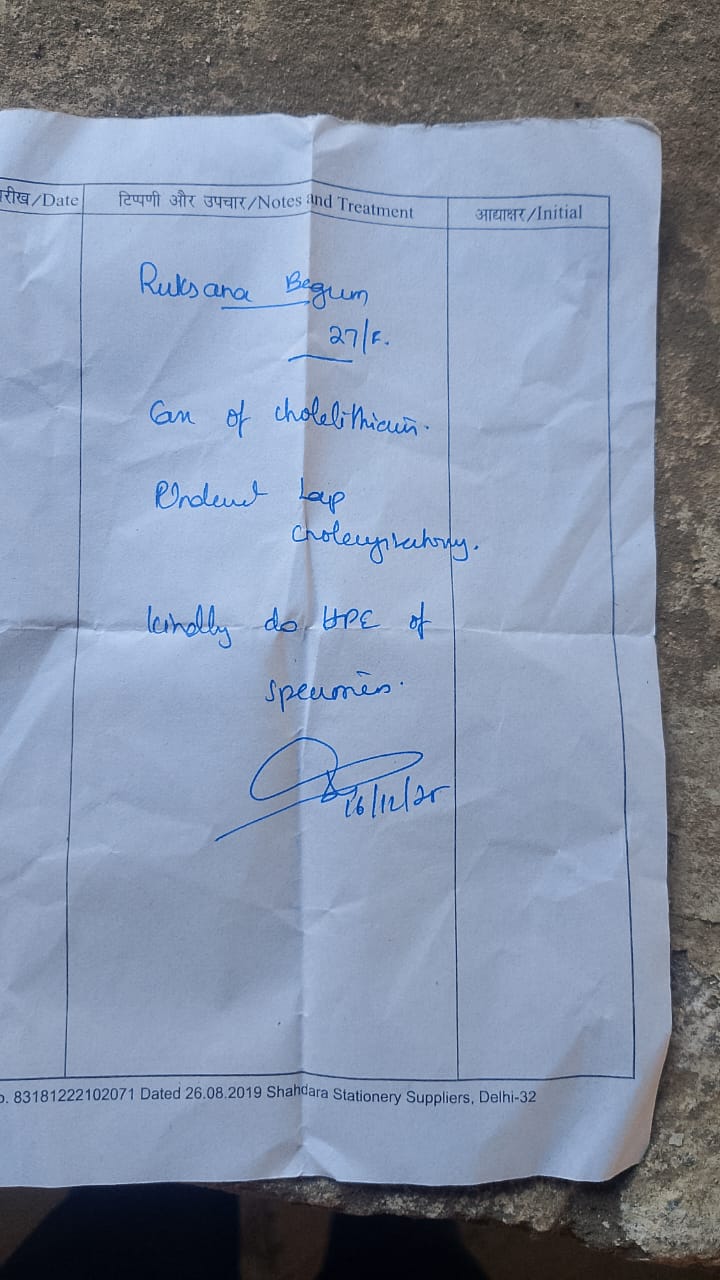 रीख/Date टिप्पणी और उपचार/Notes and Treatment आद्याक्षर/Initial
Ruksana Begum
27/F.
Case of cholelithiasis.
Underwent Lap
cholecystectomy.
kindly do HPE of
specimen.
16/12/25
o. 83181222102071 Dated 26.08.2019 Shahdara Stationery Suppliers, Delhi-32